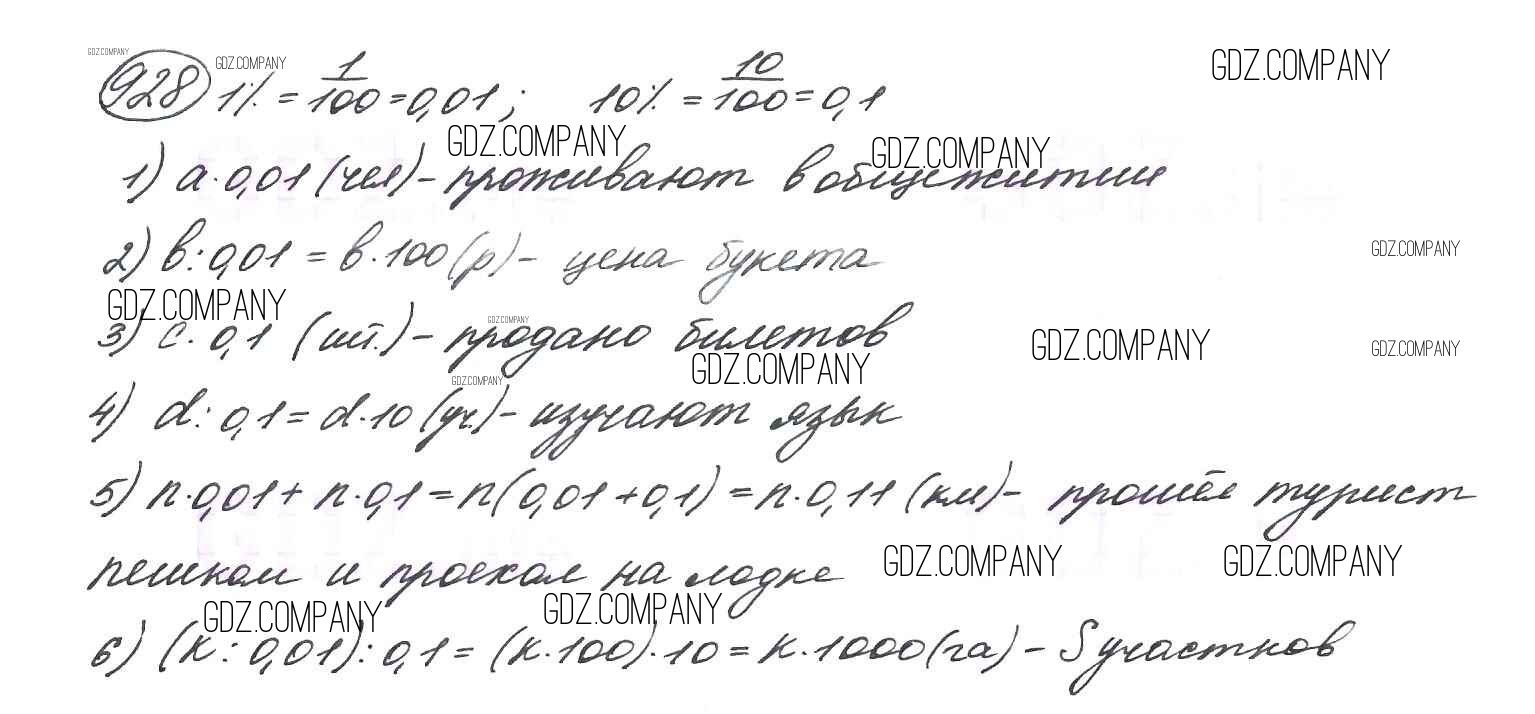 GDZ.COMPANY
928 1% = 1/100 = 0,01; 10% = 10/100 = 0,1
GDZ.COMPANY
GDZ.COMPANY
GDZ.COMPANY
GDZ.COMPANY
1) a·0,01 (чел) - проживают в общежитии
2) в:0,01 = в·100 (р) - цена букета
GDZ.COMPANY
GDZ.COMPANY
GDZ.COMPANY
3) с·0,1 (шт.) - продано билетов
GDZ.COMPANY
GDZ.COMPANY
GDZ.COMPANY
GDZ.COMPANY
4) d:0,1 = d·10 (уч.) - изучают язык
5) n·0,01 + n·0,1 = n(0,01+0,1) = n·0,11 (км) - прошёл турист
пешком и проехал на лодке
GDZ.COMPANY
GDZ.COMPANY
GDZ.COMPANY
GDZ.COMPANY
6) (к:0,01):0,1 = (к·100)·10 = к·1000 (га) - S участков